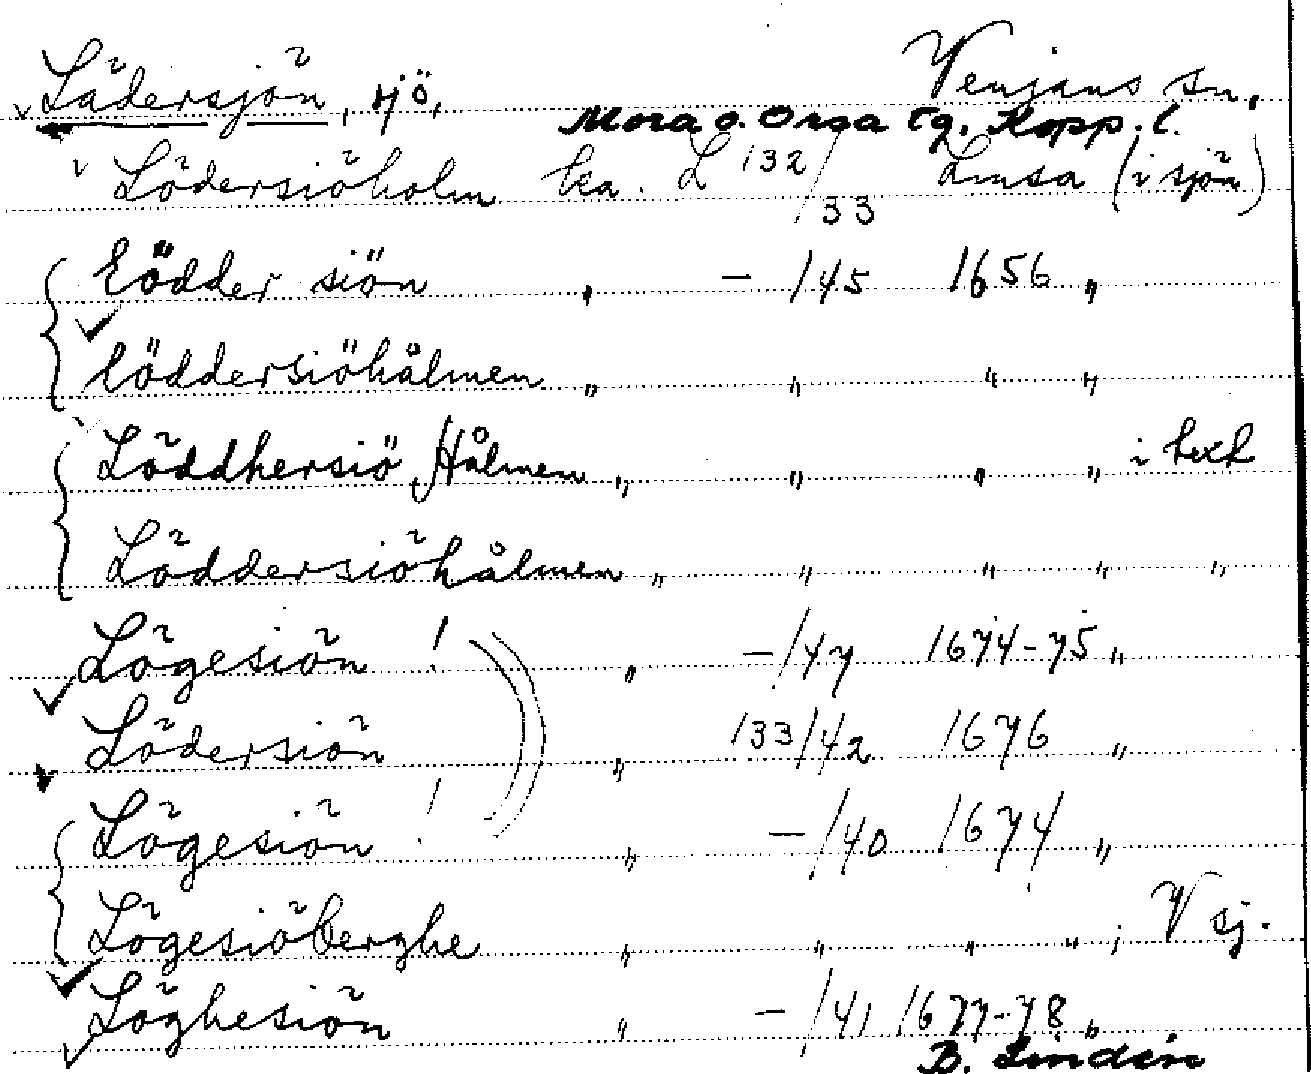 Lädersjön, sjö, Venjans sn.
Mora o. Orsa tg. Kopp. l.
Lödersiöholm ka. L 132/33 Limsa (i sjön)
Lödder siön " - /45 1656 "
Löddersiöhålmen " " " "
Löddhersiö Hålmen " " " " i text
Löddersiöhålmen " " " " "
Lögesiön ! " - /47 1674-75 "
Lödersiön " 133/42 1676 "
Lögesiön ! " - /40 1674 "
Lögesiöberghe " " " " ; V sj.
Löghesiön " - /41 1677-78 "
B. Lindén